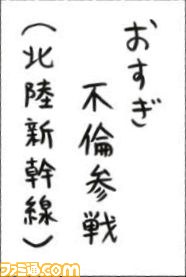 おすぎ
不倫参戦
(北陸新幹線)
ファミ通.com